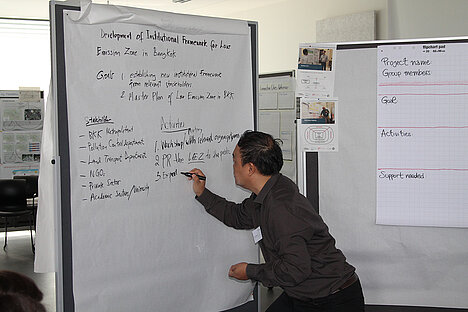 Development of Institutional Framework for Low
Emission Zone in Bangkok
Goals 1 establishing new institutional Framework
from relevant stakeholders
2 Master Plan of Low Emission Zone in BKK
Stakeholder
- BKK Metropolitant
- Pollution Control Department
- Land Transport Department
- NGOs
- Private Sector
- Academic Sector/University
Activities
Meeting
1 Workshop with relevant organizations
2 PR the LEZ to the public
3
flipchart pad
Project name
Group members
Goal
Activities
Support needed